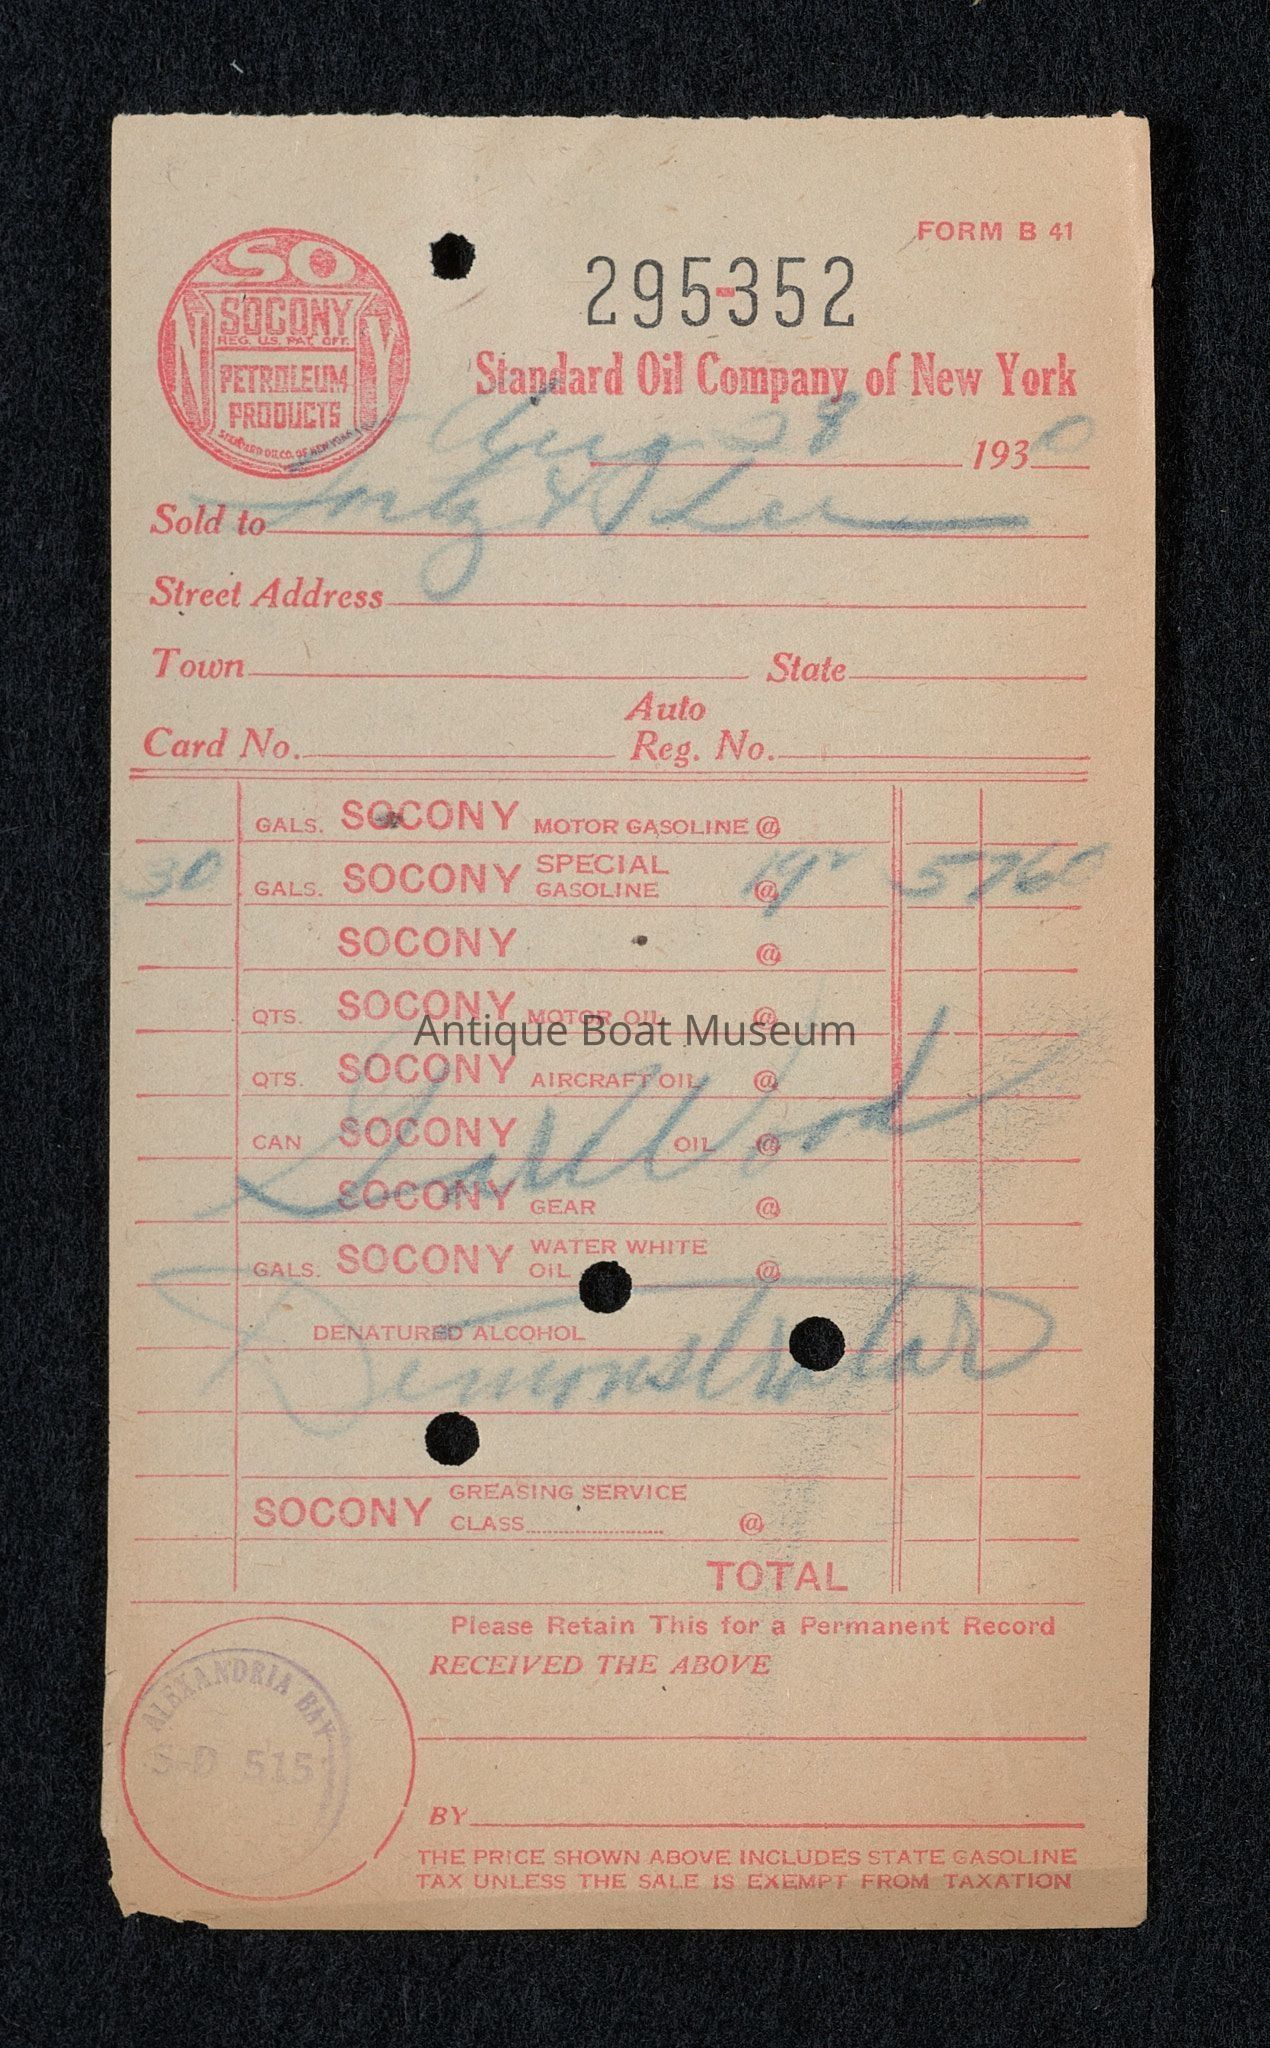 FORM B 41
SO
N Y
SOCONY
REG. U.S. PAT. OFF.
PETROLEUM
PRODUCTS
STANDARD OIL CO. OF NEW YORK
295-352
Standard Oil Company of New York
Aug 28 1930
Sold to
Street Address
Town State
Auto
Card No. Reg. No.
GALS. SOCONY MOTOR GASOLINE @
30 GALS. SOCONY SPECIAL GASOLINE @ 19² 5760
SOCONY @
QTS. SOCONY MOTOR OIL @
Antique Boat Museum
QTS. SOCONY AIRCRAFT OIL @
CAN SOCONY OIL @
Gar Wood
SOCONY GEAR @
GALS. SOCONY WATER WHITE OIL @
DENATURED ALCOHOL
Demonstrator
SOCONY GREASING SERVICE
CLASS @
TOTAL
Please Retain This for a Permanent Record
RECEIVED THE ABOVE
ALEXANDRIA BAY
S-D 515
BY
THE PRICE SHOWN ABOVE INCLUDES STATE GASOLINE
TAX UNLESS THE SALE IS EXEMPT FROM TAXATION